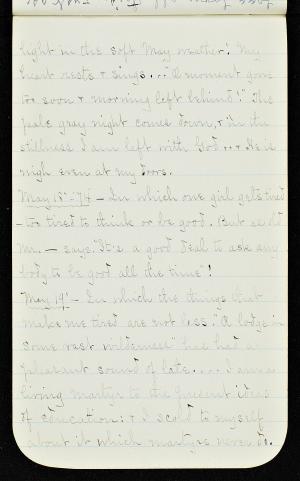 light in the soft May weather! My
heart rests & sings... "A moment gone
too soon & morning left behind!" The
pale gray night comes down, & "in the
stillness I am left with God... & He is
nigh even at my doors.
May 15" - 74 - In which one girl gets tired
- too tired to think or be good. But as old
Mr. — says. "It's a good deal to ask any
body to be good all the time"!
May 19" - In which the things that
make me tired are not less. "A lodge in
some vast wilderness" has had a
pleasant sound of late.... I am a
living martyr to the present ideas
of education: & I scold to myself
about it which martyrs never do.